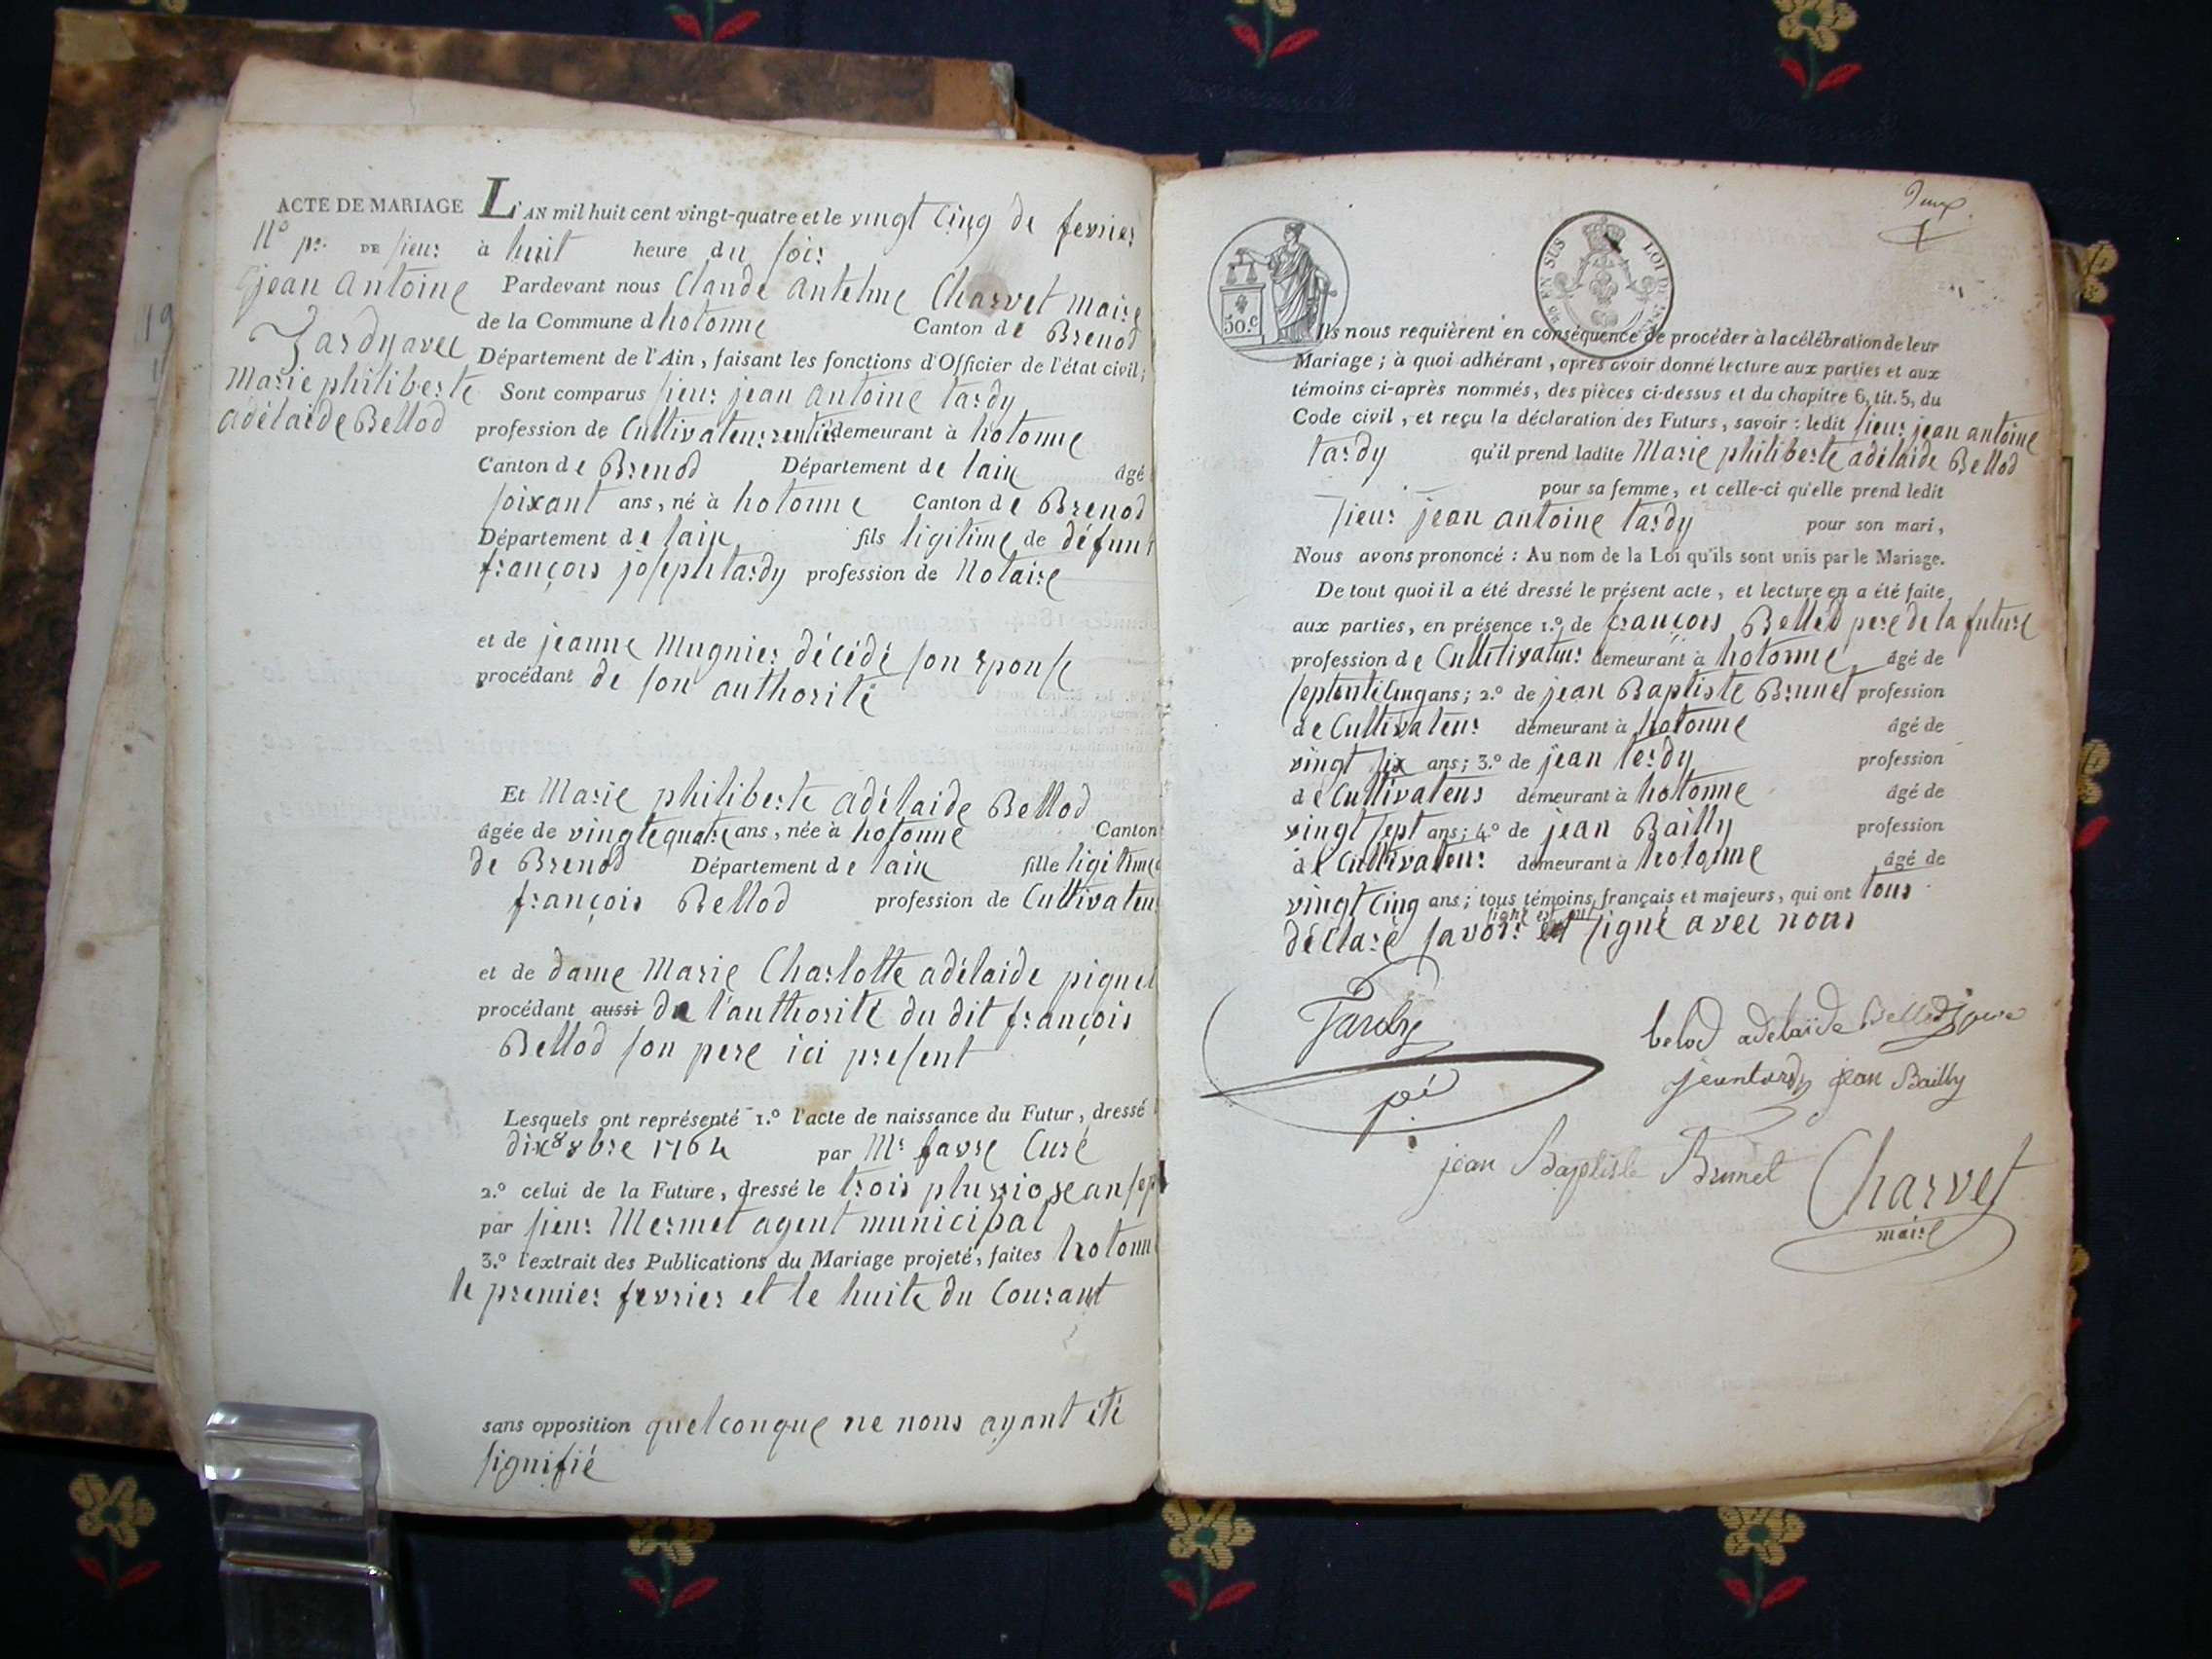 ACTE DE MARIAGE
N.º pr. DE sieur
jean antoine
Tardy avec
Marie philiberte
adélaide Bellod
L'AN mil huit cent vingt-quatre et le vingt Cinq de fevrier
à huit heure du soir
Pardevant nous Claude antelme Charvet maire
de la Commune d hotonne Canton de Brenod
Département de l'Ain, faisant les fonctions d'Officier de l'état civil;
Sont comparus sieur jean antoine tardy
profession de Cultivateur rentier demeurant à hotonne
Canton de Brenod Département de lain âgé
soixant ans, né à hotonne Canton de Brenod
Département de lain fils ligitime de défunt
françois joseph tardy profession de Notaire
et de jeanne Mugnier décédé son eponse
procédant de son authorité
Et Marie philiberte adélaide Bellod
âgée de vingte quatre ans, née à hotonne Canton
de Brenod Département de lain fille ligitime
françois Bellod profession de Cultivateu
et de dame Marie Charlotte adélaide piquet
procédant aussi de l'authorité du dit françois
Bellod son pere ici present
Lesquels ont représenté 1.º l'acte de naissance du Futur, dressé
dix 8bre 1764 par Mr favre Curé
2.º celui de la Future, dressé le trois pluviose an sep
par sieur Mermet agent municipal
3.º l'extrait des Publications du Mariage projeté, faites hotonn
le premier fevrier et le huite du Courant
sans opposition quelconque ne nous ayant été
signifié
Deux
50.c
EN SUS
LOI DE
Ils nous requièrent en conséquence de procéder à la célébration de leur
Mariage; à quoi adhérant, après avoir donné lecture aux parties et aux
témoins ci-après nommés, des pièces ci-dessus et du chapitre 6, tit. 5, du
Code civil, et reçu la déclaration des Futurs, savoir: ledit sieur jean antoine
tardy qu'il prend ladite Marie philiberte adélaide Bellod
pour sa femme, et celle-ci qu'elle prend ledit
sieur jean antoine tardy pour son mari,
Nous avons prononcé: Au nom de la Loi qu'ils sont unis par le Mariage.
De tout quoi il a été dressé le présent acte, et lecture en a été faite
aux parties, en présence 1.º de françois Bellod pere de la future
profession de Cultivateur demeurant à hotonne âgé de
septente Cinq ans; 2.º de jean Baptiste Brunet profession
de Cultivateur demeurant à hotonne âgé de
vingt six ans; 3.º de jean terdy profession
de Cultivateur demeurant à hotonne âgé de
vingt sept ans; 4.º de jean Bailly profession
de Cultivateur demeurant à hotonne âgé de
vingt Cinq ans; tous témoins français et majeurs, qui ont tous
déclaré savoir signé et ont signé avec nous
Tardy
belod adelaïde Bellod pere
jeantardy jean Bailly
jean Baptiste Brunet Charvet
maire